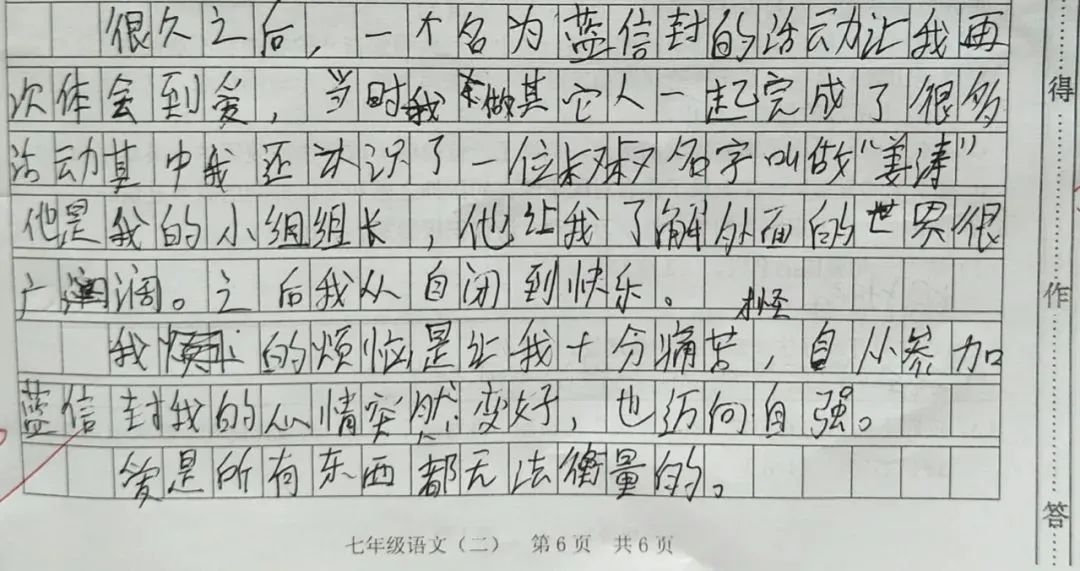 很久之后，一个名为蓝信封的活动让我再
次体会到爱，当时我做其它人一起完成了很多
活动其中我还认识了一位叔叔名字叫做“姜涛”
他是我的小组组长，他让我了解外面的世界很
广阔。之后我从自闭到快乐。
我的烦恼是让我十分痛苦，自从参加
蓝信封我的心情突然变好，也迈向自强。
爱是所有东西都无法衡量的。
七年级语文（二） 第6页 共6页
得
作
答